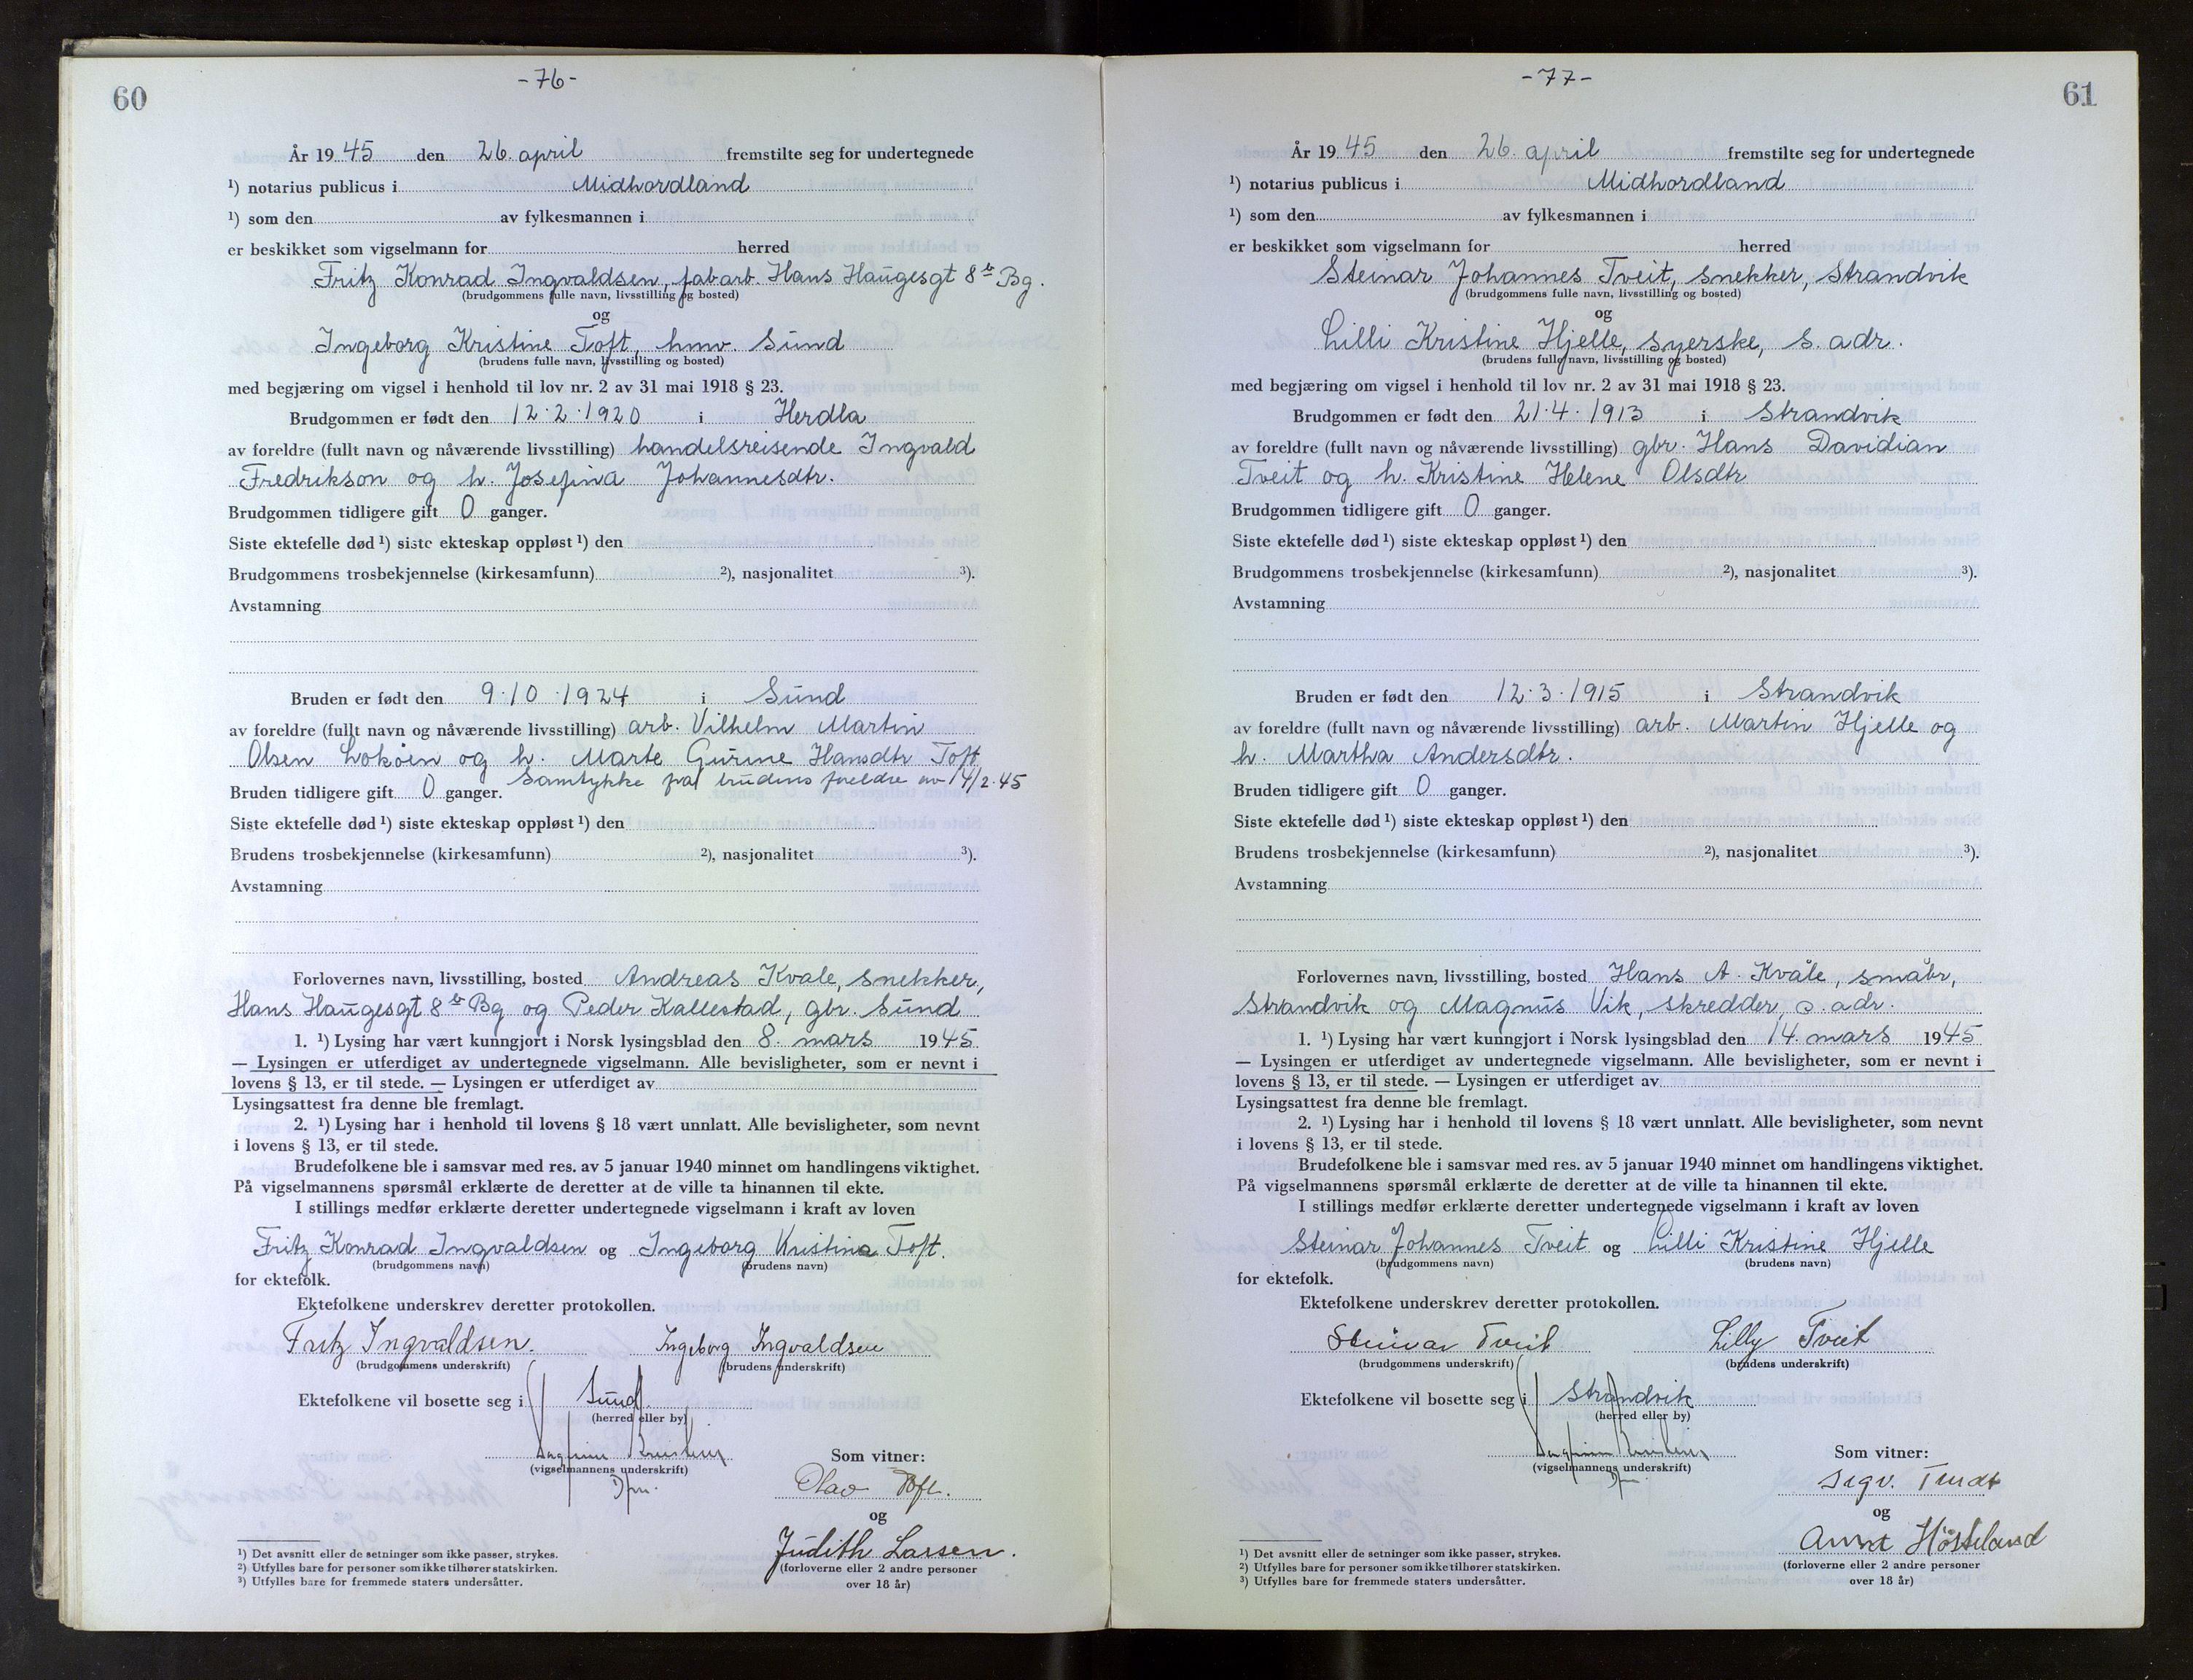 60
-76-
År 1945 den 26. april fremstilte seg for undertegnede
¹) notarius publicus i Midhordland
¹) som den av fylkesmannen i
er beskikket som vigselmann for herred
Fritz Konrad Ingvaldsen, fabarb. Hans Haugesgt 8 Bg.
(brudgommens fulle navn, livsstilling og bosted)
og
Ingeborg Kristine Toft, hmv. Sund
(brudens fulle navn, livsstilling og bosted)
med begjæring om vigsel i henhold til lov nr. 2 av 31 mai 1918 § 23.
Brudgommen er født den 12.2.1920 i Herdla
av foreldre (fullt navn og nåværende livsstilling) handelsreisende Ingvald
Fredrikson og h. Josefina Johannesdtr.
Brudgommen tidligere gift 0 ganger.
Siste ektefelle død ¹) siste ekteskap oppløst ¹) den
Brudgommens trosbekjennelse (kirkesamfunn) ²), nasjonalitet ³).
Avstamning
Bruden er født den 9.10.1924 i Sund
av foreldre (fullt navn og nåværende livsstilling) arb. Vilhelm Martin
Olsen Lokøen og h. Marte Gurine Hansdtr Toft
Samtykke fra brudens foreldre av 14/2.45
Bruden tidligere gift 0 ganger.
Siste ektefelle død ¹) siste ekteskap oppløst ¹) den
Brudens trosbekjennelse (kirkesamfunn) ²), nasjonalitet ³).
Avstamning
Forlovernes navn, livsstilling, bosted Andreas Kvale, snekker,
Hans Haugesgt 8 Bg og Peder Kallestad, gbr. Sund
1. ¹) Lysing har vært kunngjort i Norsk lysingsblad den 8. mars 1945
— Lysingen er utferdiget av undertegnede vigselmann. Alle bevisligheter, som er nevnt i
lovens § 13, er til stede. — Lysingen er utferdiget av
Lysingsattest fra denne ble fremlagt.
2. ¹) Lysing har i henhold til lovens § 18 vært unnlatt. Alle bevisligheter, som nevnt
i lovens § 13, er til stede.
Brudefolkene ble i samsvar med res. av 5 januar 1940 minnet om handlingens viktighet.
På vigselmannens spørsmål erklærte de deretter at de ville ta hinannen til ekte.
I stillings medfør erklærte deretter undertegnede vigselmann i kraft av loven
Fritz Konrad Ingvaldsen og Ingeborg Kristina Toft.
(brudgommens navn) (brudens navn)
for ektefolk.
Ektefolkene underskrev deretter protokollen.
Fritz Ingvaldsen. Ingeborg Ingvaldsen
(brudgommens underskrift) (brudens underskrift)
Ektefolkene vil bosette seg i Sund
(herred eller by)
(vigselmannens underskrift)
Som vitner:
Olav Toft.
og
Judith Larsen.
(forloverne eller 2 andre personer
over 18 år)
¹) Det avsnitt eller de setninger som ikke passer, strykes.
²) Utfylles bare for personer som ikke tilhører statskirken.
³) Utfylles bare for fremmede staters undersåtter.
61
-77-
År 1945 den 26. april fremstilte seg for undertegnede
¹) notarius publicus i Midhordland
¹) som den av fylkesmannen i
er beskikket som vigselmann for herred
Steinar Johannes Tveit, snekker, Strandvik
(brudgommens fulle navn, livsstilling og bosted)
og
Lilli Kristine Hjelle, syerske, s. adr.
(brudens fulle navn, livsstilling og bosted)
med begjæring om vigsel i henhold til lov nr. 2 av 31 mai 1918 § 23.
Brudgommen er født den 21.4.1913 i Strandvik
av foreldre (fullt navn og nåværende livsstilling) gbr. Hans Davidian
Tveit og h. Kristine Helene Olsdtr
Brudgommen tidligere gift 0 ganger.
Siste ektefelle død ¹) siste ekteskap oppløst ¹) den
Brudgommens trosbekjennelse (kirkesamfunn) ²), nasjonalitet ³).
Avstamning
Bruden er født den 12.3.1915 i Strandvik
av foreldre (fullt navn og nåværende livsstilling) arb. Martin Hjelle og
h. Martha Andersdtr.
Bruden tidligere gift 0 ganger.
Siste ektefelle død ¹) siste ekteskap oppløst ¹) den
Brudens trosbekjennelse (kirkesamfunn) ²), nasjonalitet ³).
Avstamning
Forlovernes navn, livsstilling, bosted Hans A. Kvåle, småbr,
Strandvik og Magnus Vik, skredder, s. adr.
1. ¹) Lysing har vært kunngjort i Norsk lysingsblad den 14. mars 1945
— Lysingen er utferdiget av undertegnede vigselmann. Alle bevisligheter, som er nevnt i
lovens § 13, er til stede. — Lysingen er utferdiget av
Lysingsattest fra denne ble fremlagt.
2. ¹) Lysing har i henhold til lovens § 18 vært unnlatt. Alle bevisligheter, som nevnt
i lovens § 13, er til stede.
Brudefolkene ble i samsvar med res. av 5 januar 1940 minnet om handlingens viktighet.
På vigselmannens spørsmål erklærte de deretter at de ville ta hinannen til ekte.
I stillings medfør erklærte deretter undertegnede vigselmann i kraft av loven
Steinar Johannes Tveit og Lilli Kristine Hjelle
(brudgommens navn) (brudens navn)
for ektefolk.
Ektefolkene underskrev deretter protokollen.
Steinar Tveit Lilly Tveit
(brudgommens underskrift) (brudens underskrift)
Ektefolkene vil bosette seg i Strandvik
(herred eller by)
(vigselmannens underskrift)
Som vitner:
og
Anna
(forloverne eller 2 andre personer
over 18 år)
¹) Det avsnitt eller de setninger som ikke passer, strykes.
²) Utfylles bare for personer som ikke tilhører statskirken.
³) Utfylles bare for fremmede staters undersåtter.